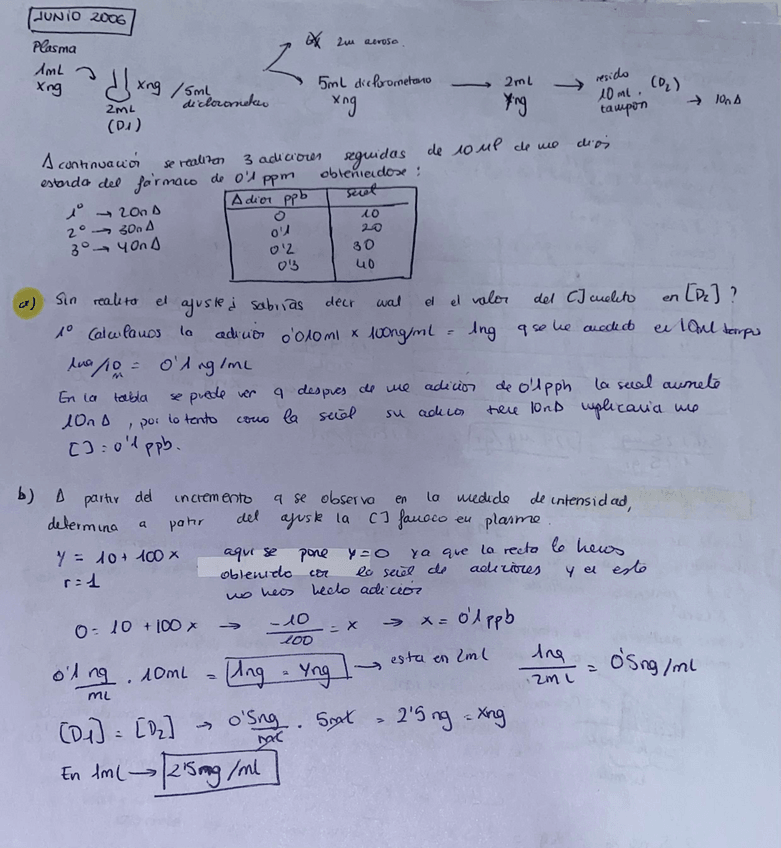 JUNIO 2006
Plasma
1mL
xng
xng /5mL
diclorometano
2mL
(D1)
2m acuosa.
5mL diclorometano
xng
2mL
Yng
residuo
10 mL. (D2)
tampón
10nA
A continuación se realizan 3 adiciones seguidas de 10 µl de una
estándar del fármaco de 0'1 ppm obteniendose:
1º → 20nA
2º → 30nA
3º → 40nA
Adición ppb señal
0 10
0'1 20
0'2 30
0'3 40
a) Sin realizar el ajuste ¿ sabrías decir cual es el valor del [] analito en [D2] ?
1º Calculamos la adición 0'010ml x 100ng/mL = 1ng q se ha añadido en 10ml tampón
1ng/10 = 0'1 ng/mL
m
En la tabla se puede ver q despues de una adición de 0'1pph la señal aumenta
10nA , por lo tanto como la señal sin adición tiene 10nA implicaría una
[] = 0'1 ppb.
b) A partir del incremento q se observa en la medida de intensidad,
determina a partir del ajuste la [] farmaco en plasma.
y = 10+ 100 x
r = 1
aqui se pone y = 0 ya que la recta la hemos
obtenido con la señal de adiciones y en esta
no hemos hecho adición
0 = 10 + 100 x → -10/100 = x → x = 0'1 ppb
0'1 ng/mL . 10mL = 1ng = Yng → esta en 2ml 1ng/2mL = 0'5ng/mL
[D1] = [D2] → 0'5ng/mL . 5mL = 2'5 ng = xng
En 1mL → 2'5mg/ml